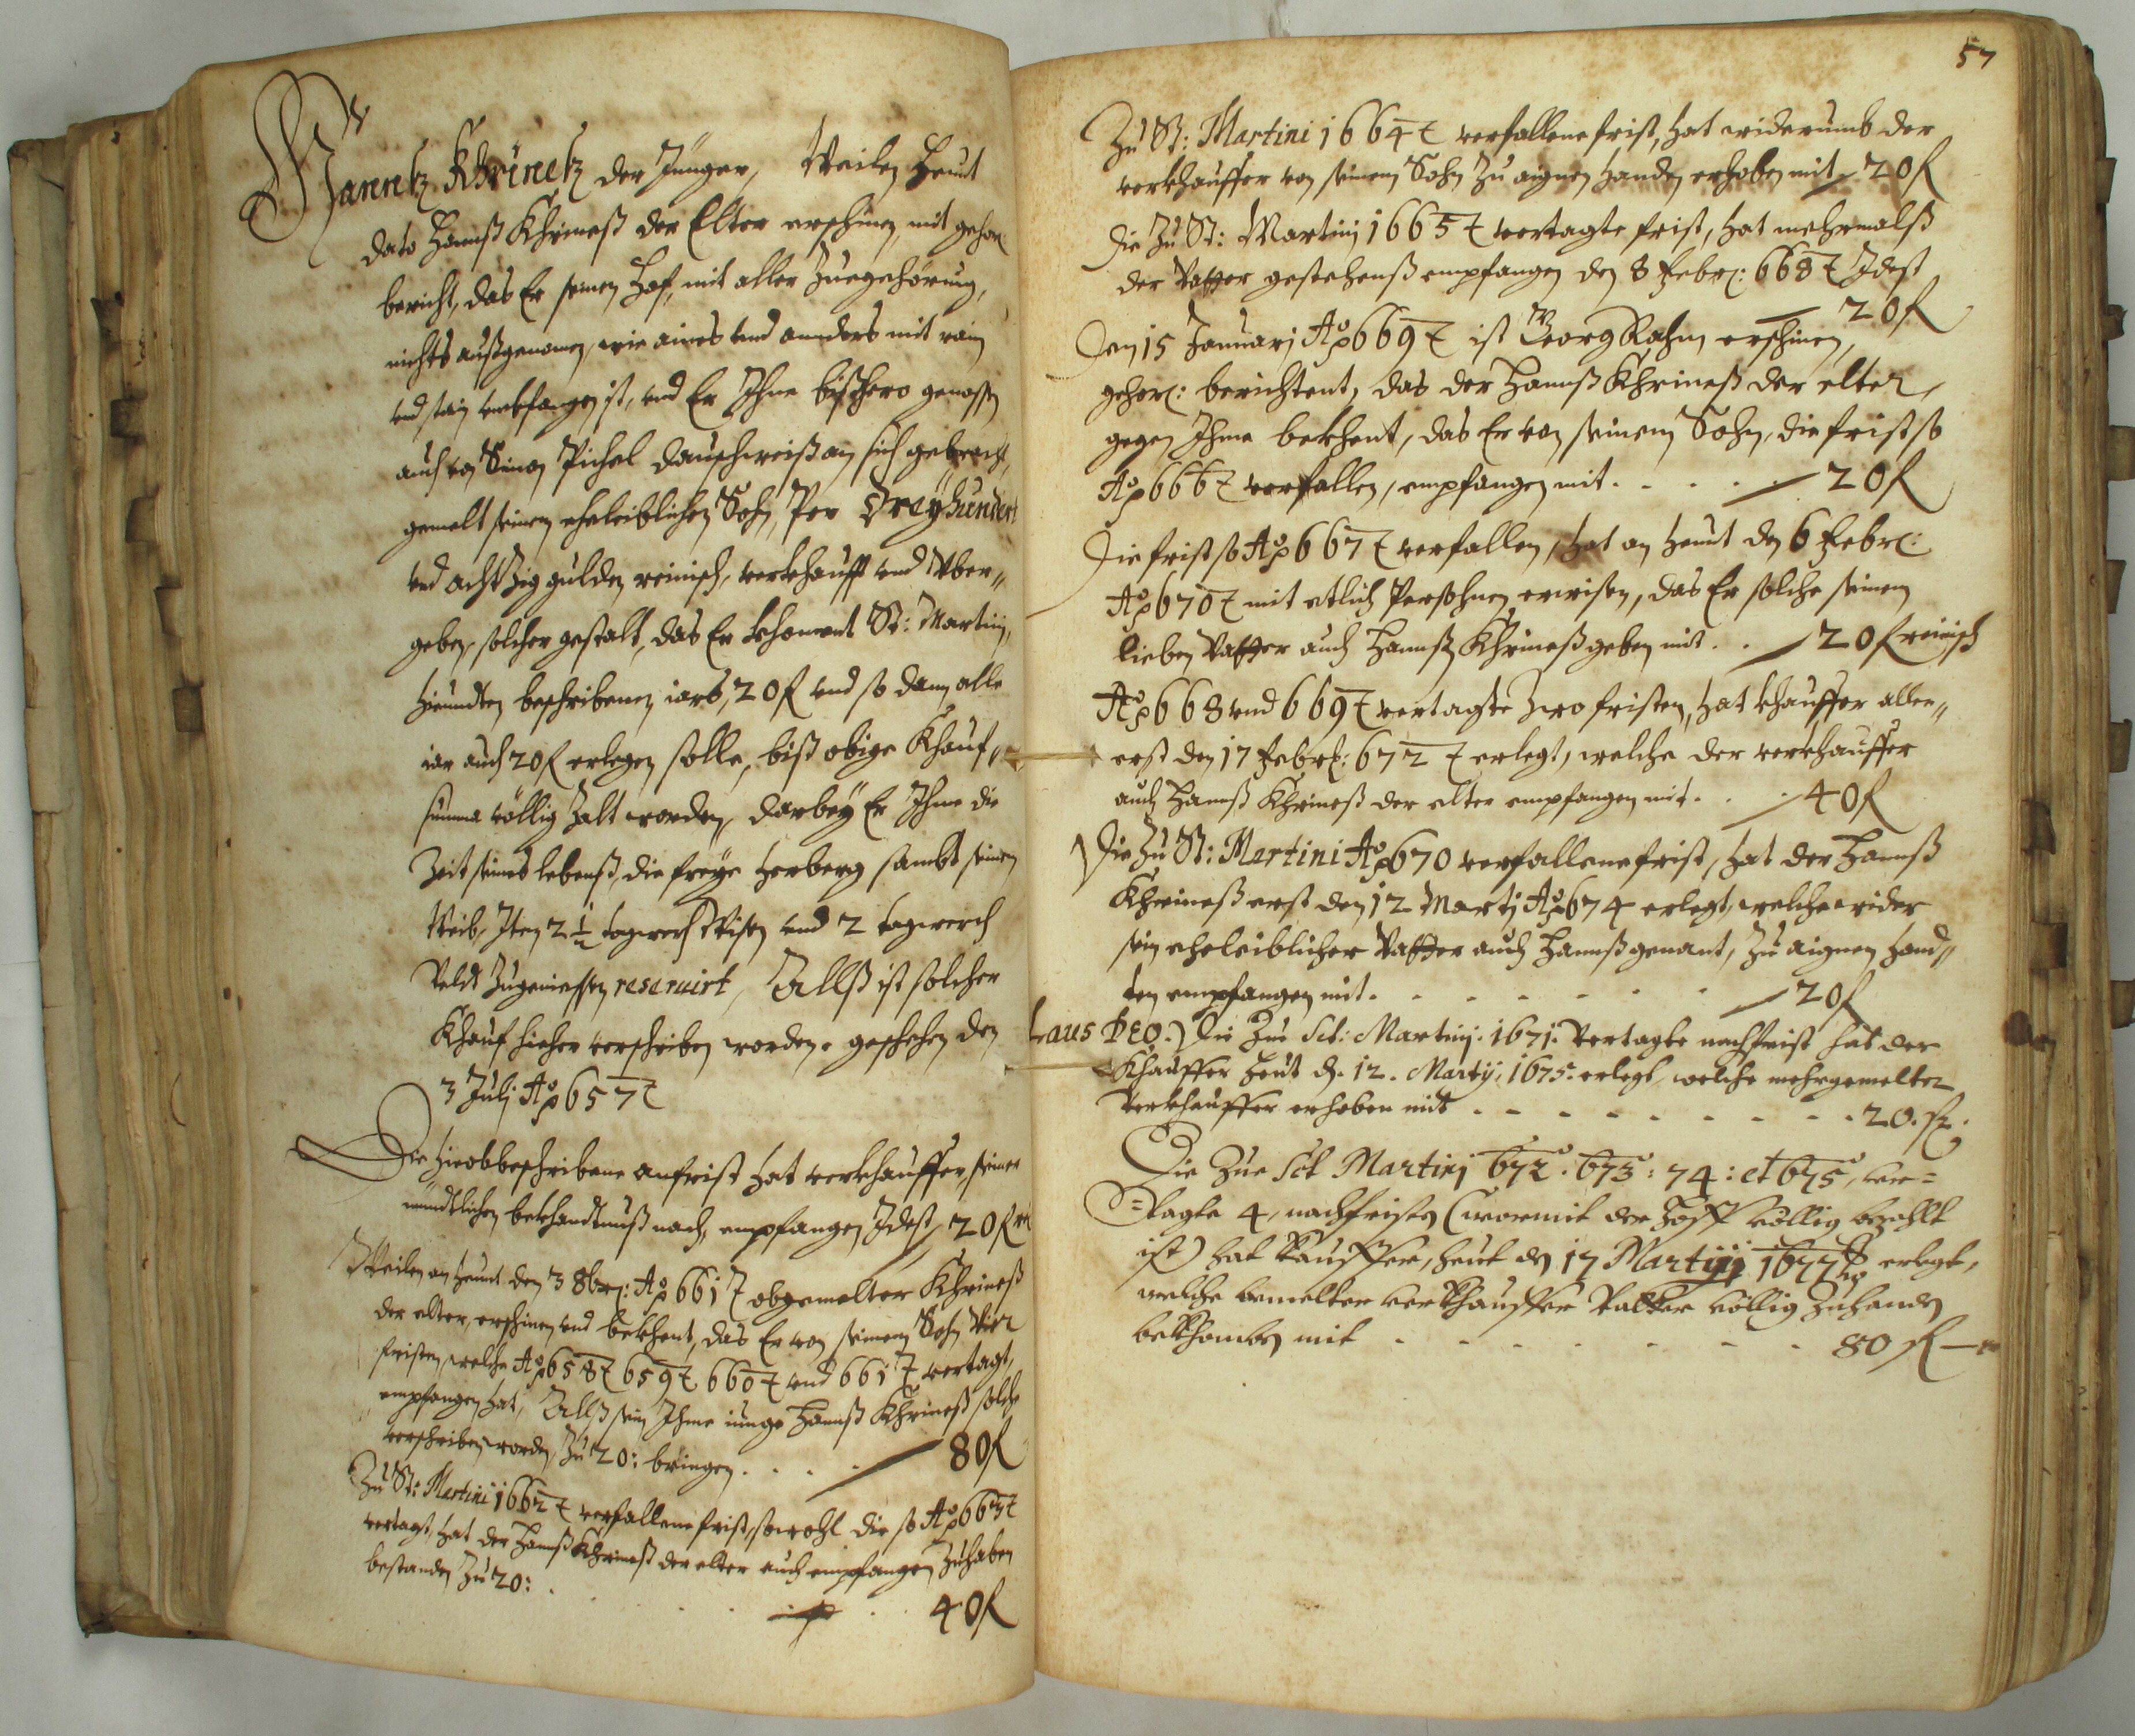 Hannß Khrineß der Jünger, Weilen heunt
dato Hannß Khrineß der Elter erschinen, mit gehor:
bericht, das Er seinen Hof, mit aller Zuegehörung,
nichts außgenomen, wie aines und annders mit rain
und stain umbfangen ist, und Er Ihne bißhero genossen
auch von Simon Pichel dauschweiß an sich gebracht,
gemelt seinem eheleiblichen Sohn, Per Dreyhundert
und achtzig gulden reinisch, verkhaufft und Yber„
geben, solcher gestalt, das Er khoment St: Martini,
hieundten beschribenen iars, 20 f und so dann alle
iar auch 20 f erlegen solle, biß obige Khauf„
summa völlig zalt worden, darbey Er Ihme die
Zeit seines lebenß, die freye herberg sambt seinem
Weib, Item 2 ½ tagwerch Wisen und 2 tagwerch
Veldt zugeniessen reseruirt, Allß ist solcher
Khauf hieher verschriben worden. geschehen den
3 Julj Ao 657
Die hieobbeschribene anfrist hat verkhauffer, seiner
mündtlichen bekhandtnuß nach, empfangen Idest 20 f
Weilen an heunt den 3 8br: Ao 661 obgemelter Khrineß
der elter, erschinen und bekhent, das Er von seinem Sohn Vier
fristen, welche Ao 658 659 660 und 661 vertagt,
empfangen hat, Allß sein Ihme iunge Hannß Khrineß solche
verschriben worden, zu 20: bringen . . . . 80 f
Zu St: Martini 1662 verfallene frist, sowohl die so Ao 663
vertagt, hat der Hannß Khrineß der elter auch empfangen zuhaben
bestanden zu 20: . . . . 40 f
57
Zu St: Martini 1664 verfallene frist, hat widerumb der
verkhauffer von seinem Sohn zu aignen handen erhoben mit 20 f
Die zu St: Martinj 1665 vertagte frist, hat mehrmalß
der Vatter gestehenß empfangen den 8 Febr: 668 Idest
20 f
Den 15 Januarj Ao 669 ist Georg Rahm erschinen,
gehor: berichtent, das der Hannß Khrineß der elter,
gegen Ihme bekhent, das Er von seinem Sohn, die frist so
Ao 666 verfallen, empfangen mit . . . . 20 f
Die frist so Ao 667 verfallen, hat an heunt den 6 Febr:
Ao 670 mit etlich Persohnen erwisen, das Er solche seinem
lieben Vatter auch Hannß Khrineß geben mit . . 20 f reinisch
Ao 668 und 669 vertagte zwo fristen, hat khauffer aller„
erst den 17 Febr: 672 erlegt, welche der verkhauffer
auch Hannß Khrineß der elter empfangen mit . . . 40 f
Die zu St: Martini Ao 670 verfallene frist, hat der Hannß
Khrineß erst den 12 Martj Ao 674 erlegt, welche wider
sein eheleiblicher Vatter auch Hannß genant, zu aignen hand„
ten empfangen mit . . . . . . 20 f
Laus Deo.) Die Zue Sct: Martinj. 1671. Vertagte nachfrist hat der
Khauffer heut d. 12. Martij. 1675. erlegt, welche mehrgemelter
Verkhauffer erhoben mit . . . . . . . . . 20. f.
Die Zue Sct Martinj 672. 673: 74: et 675, ver=
=tagte 4, nachfristen (wormit der Hoff völlig bezahlt
ist) hat Kauffer, heut den 17 Martij 1677 erlegt,
welche bemelter verkhauffer Vatter völlig zuhanden
bekhomben mit . . . . . . . 80 f